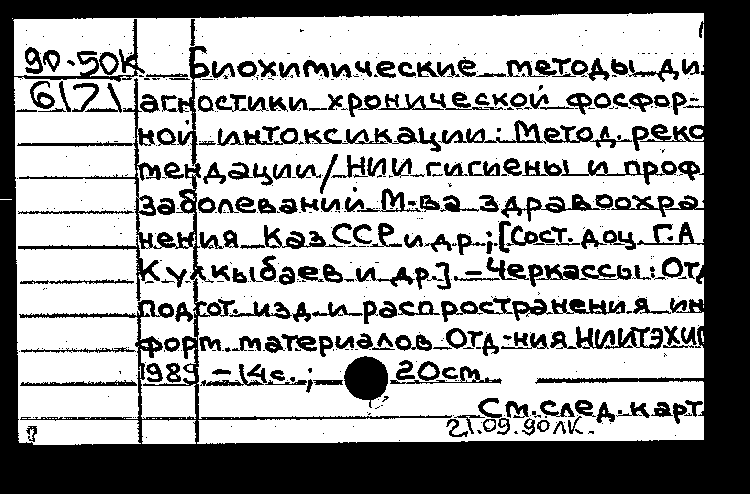 90-50К Биохимические методы ди
6171 агностики хронической фосфор-
ной интоксикации: Метод. реко
мендации/НИИ гигиены и проф
заболеваний М-ва здравоохра
нения КазССР и др.; [Сост. доц. Г.А.
Кулкыбаев и др.]. – Черкассы: Отд
подгот. изд. и распространения ин
форм. материалов Отд-ния НИИТЭХИ
1989. – 14с.; 20см.
См. след. карт.
21.09.90 ЛК.